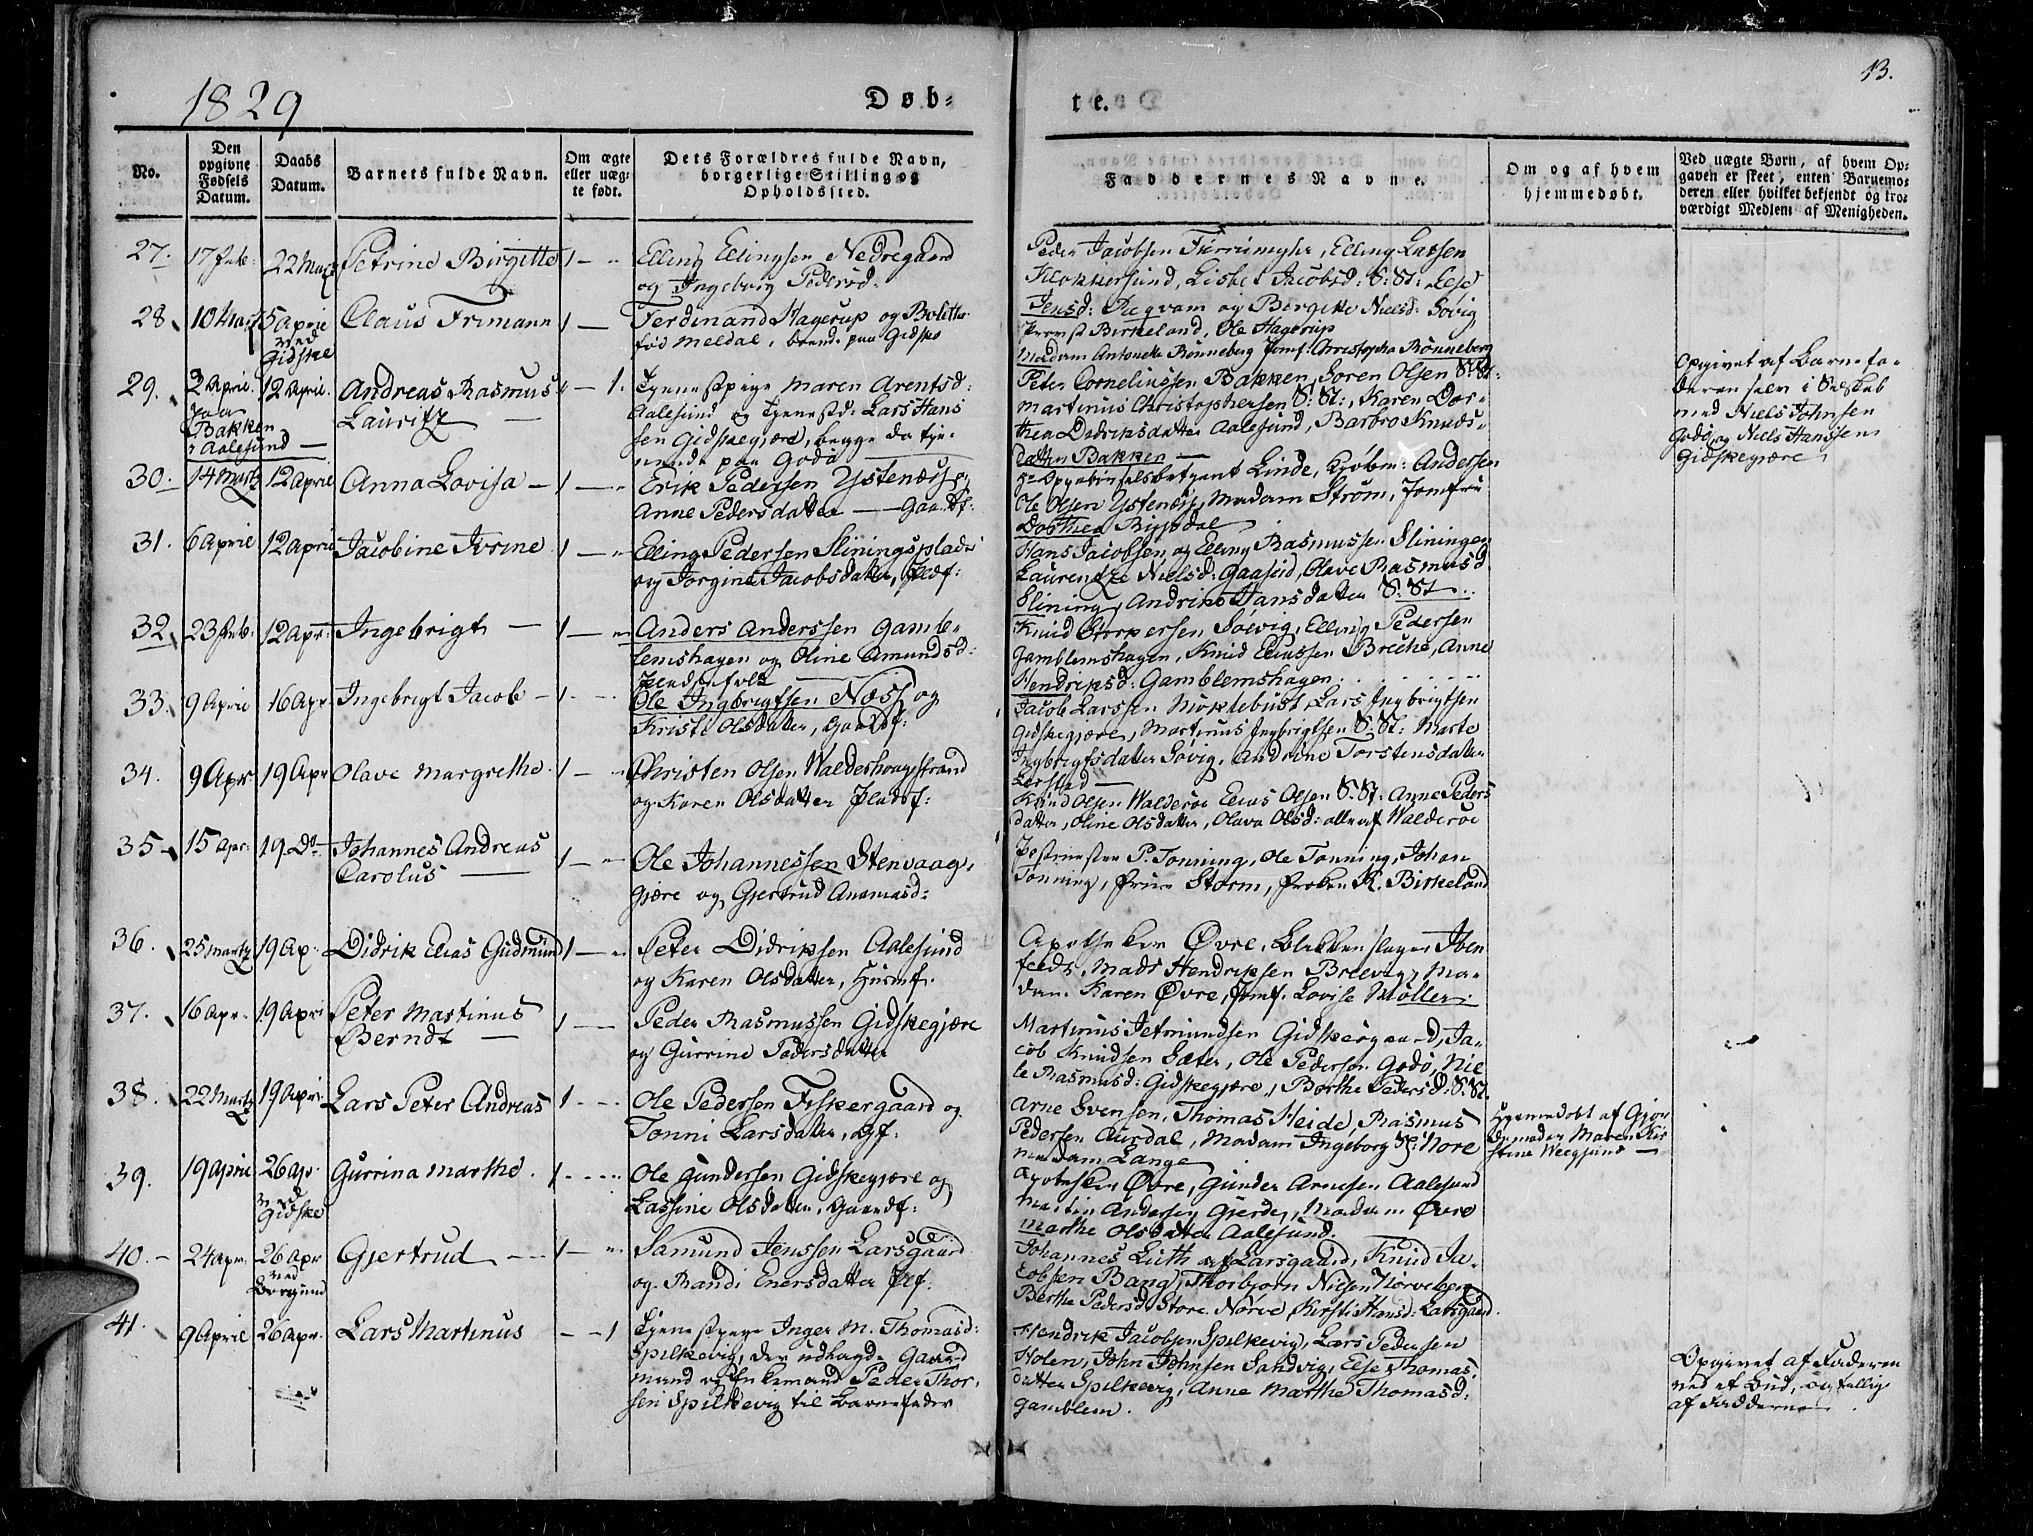 13.
1829
Døb-
te.
No.
Den opgivne Fødsels Datum.
Daabs Datum.
Barnets fulde Navn.
Om ægte eller uægte født.
Dets Forældres fulde Navn, borgerlige Stilling og Opholdssted.
Faddernes Navne.
Om og af hvem hjemmedøbt.
Ved uægte Børn, af hvem Opgaven er skeet, enten Barnemoderen eller hvilket bekjendt og troværdigt Medlem af Menigheden.
27. 17 Feb: 22 Martz Petrine Birgitte 1 Elling Ellingsen Nedregaard
og Ingeborg Pedersd:
Peder Jacobsen Furrimyhr, Elling Larsen
Klokkersund, Lisbet Jacobsd: S: St: Else
Jensd: og Birgitte Nielsd: Søvig
28. 10 Martz 5 April
ved
Gidske
Claus Frimann 1 Ferdinand Hagerup og Bolette
fød Meldal, boende paa Gidske
Provst Birkeland, Ole Hagerup
Madam Antonette Rønneberg Jomf: Christopha Rønneberg
29. 2 April
paa
Bakken
i Aalesund
12 April. Andreas Rasmus
Lauritz
1. Tjenestpige Maren Arentsd:
Aalesund og Tjenestd: Lars Hans
sen Gidskegjære, begge da tje-
nende paa Godø
Peter Corneliussen Bakken, Soren Olsen S. St:
Martinus Christophersen S: St:, Karen Dor-
thea Didriksdatter Aalesund, Barbro Knuds-
datter Bakken
Opgivet af Barnefa-
deren selv i Selskab
med Niels Johnsen
Godø og Niels Hanssen
Gidskegjære
30. 14 Martz 12 April Anna Lovisa 1 Erik Pedersen Ystenæs og
Anne Pedersdatter Gaardf:
Linde, Kjøbm: Andersen
Ole Olsen Ystenæs, Madam Strøm, Jomfru
Dorthea
31. 6 April 12 April Jacobine Ivrine 1 Elling Pedersen Sliningsplads
og Jorgine Jacobsdatter, Pladsf:
Hans Jacobsen og Elling Rasmussen Sliningen
Laurendze Nielsd: Gaaseid, Olave Rasmusd
Slining, Andrine Hansdatter S: St
32. 23 Feb. 12 Apr: Ingebrigt 1 Anders Anderssen Gamb-
lemshagen og Oline Amundsd:
Pladsfolk
Knud Torkersen Søevig, Elling Pedersen
Gamblemshagen, Knud Eliassen Breche, Anne
Hendriksd: Gamblemshagen
33. 9 April 16 Apr Ingebrigt Jacob 1. Ole Ingbrigtsen Næss og
Kristi Olsdatter, Gaardf:
Jacob Larssen Moklebust, Lars Ingbrigtsen
Gidskegjære, Martinus Ingbrigtsen S. St: Marte
Ingbrigtsdatter Søvig, Andrine Torstensdatter
Lerstad
34. 9 Apr 19 Apr Olave Margrethe. 1 Christen Olsen Walderhougstrand
og Karen Olsdatter Pladsf:
Knud Olsen Walderøe Elias Olsen S. St: Anne Peders
datter, Oline Olsdatter, Olava Olsd: alle af Walderøe
35 15 Apr: 19 Do Johannes Andreas
Carolus 1 Ole Johannessen Stenvaag-
gjære og Gjertrud Ananiasd:
Postmester P. Tonning, Ole Tonning, Johan
Tonning, Frue Storm, Frøken K. Birkeland
36. 25 Martz 19 Ap. Didrik Elias Gudmund 1 Peter Didriksen Aalesund
og Karen Olsdatter, Husmf.
Apotheker Øvre, Blikkenslager Iben
feldt, Mads Hendriksen Breevig, Ma-
dam Karen Øvre, Jomf. Lovise Møller:
37. 16 Apr. 19 April Peter Martinus
Berndt 1 Peder Rasmussen Gidskegjære
og Gurrine Pedersdatter
Martinus Jetmundsen Gidskegaard, Ja-
cob Knudsen Sæter, Ole Pedersen Godø, Nie
le Rasmusd: Gidskegjære, Berthe Pedersd: S. St.
38. 22 Martz 19 April Lars Peter Andreas 1 Ole Pedersen Fiskergaard og
Tonni Larsdatter, Gf:
Arne Svensen, Thomas Heide, Rasmus
Pedersen Aursdal, Madam Ingeborg St: More
Madam Lange
Hjemmedøbt af Gjor
demoder Maren Kir
stine Weegsund
39. 19 April 26 Ap
ved
Gidske
Gurrina Marthe. 1 Ole Gundersen Gidskegjære og
Lassine Olsdatter, Gaardf:
Apotheker Øvre, Gunder Arnesen Aalesund
Martin Andersen Gjerde, Madam Øvre
Marthe Olsdatter Aalesund.
40. 24 Apr. 26 Apr
ved
Borgund
Gjertrud 1 Samund Jenssen Larsgaard
og Randi Enersdatter Plf:
Johannes Luth af Larsgaard, Knud Ja-
cobsen Bang, Thorbjørn Nielsen Nørveberg
Berthe Pedersd Store Nørve, Kirsti Hansd: Larsgaard
41. 9 April 26 Apr. Lars Martinus 1 Tjenestpige Inger M. Thomasd:
Spilkevig, der udlagde Gaard
mand og Enkemand Peder Thor-
sen Spilkevig til Barnefader
Hendrik Jacobsen Spilkevig, Lars Pedersen
Holen, John Johnsen Sandvig, Else Thomas
datter Spilkevig, Anne Marthe Thomasd:
Gamblem.
Opgivet af Faderen
ved et Bud, og tillige
af Fadderne